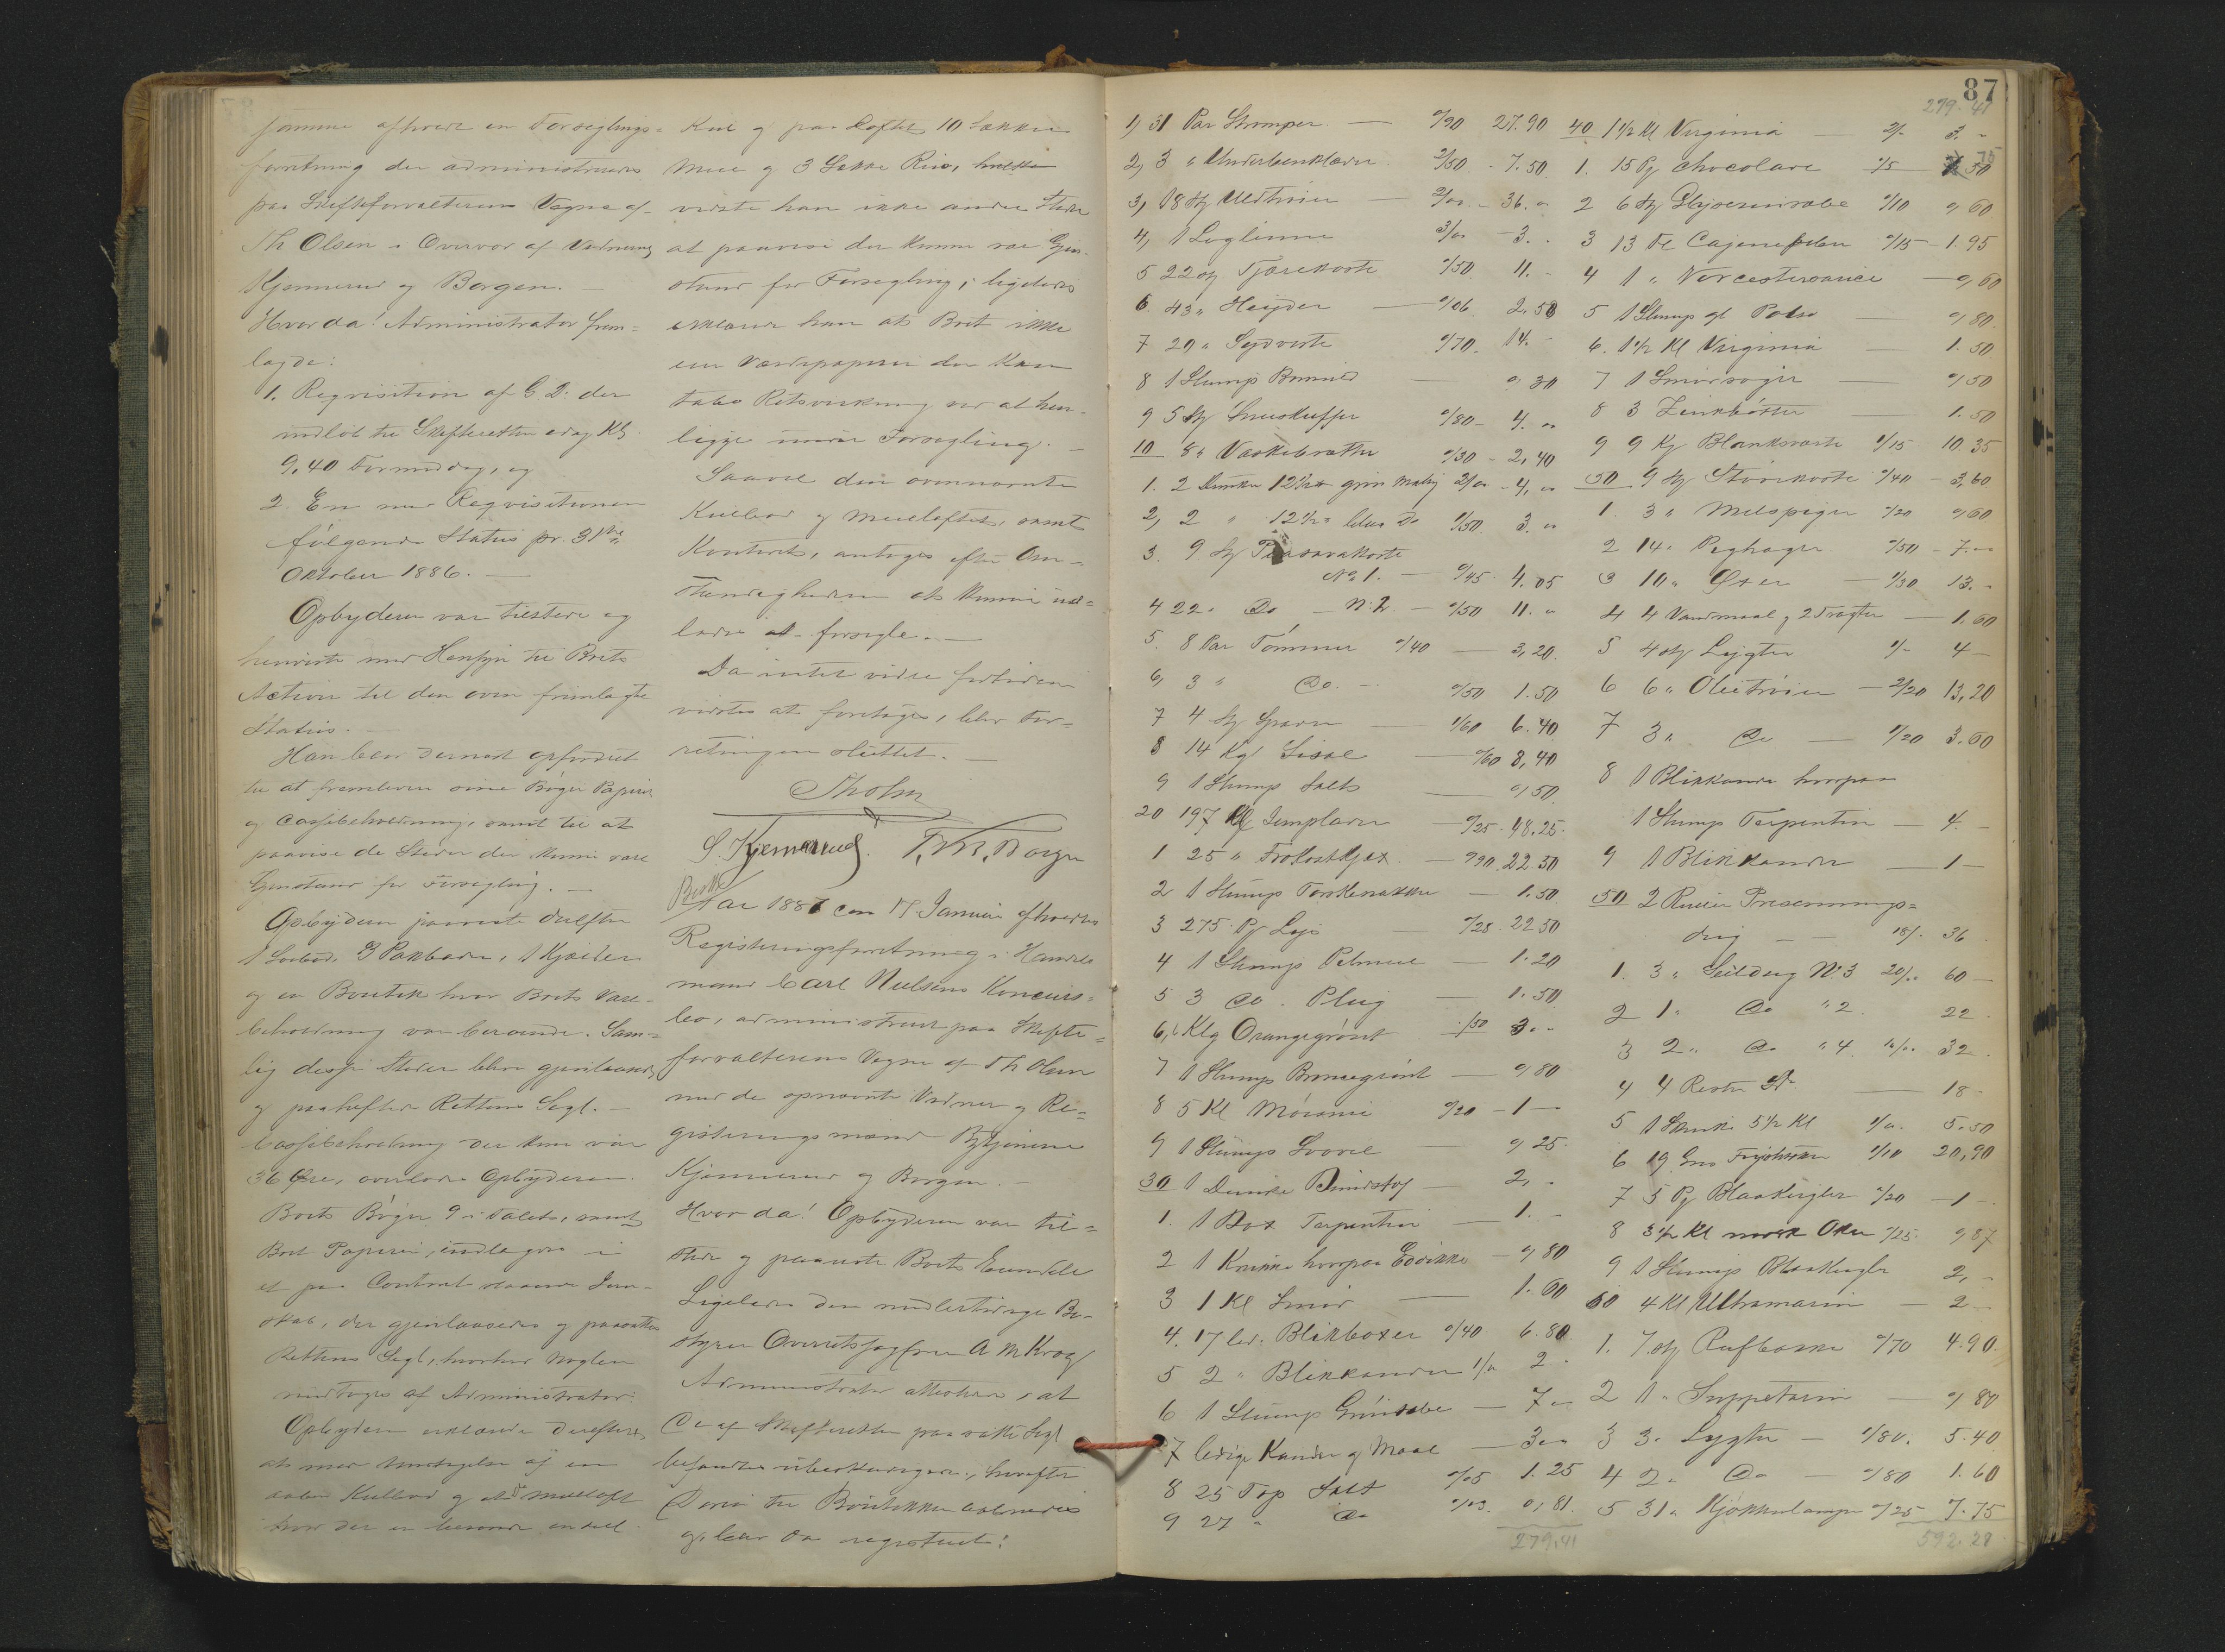 samme afholdt en Forseglings-
forretning der administreredes
paa Skifteforvalterens Vegne af
Th Olsen i Overvær af Vidnerne
Kjennerud og Borgen. —
Hvorda! Administrator frem-
lagde:
1. Requisition af C. D. der
indløb til Skifteretten idag Kl.
9,40 Formiddag, og
2. En med Requisitionen
følgende Status pr. 31te
Oktober 1886. —
Opbyderen var tilstede og
henviste med Hensyn til Boets
Activa til den oven fremlagte
Status. —
Han blev dernæst opfordret
til at fremlevere sine Bøger Papirer
og Cassebeholdning, samt til at
paavise de Steder der kunne være
Gjenstand for Forsegling. —
Opbyderen paaviste derefter
1 Sobod, 3 Pakboder, 1 Kjælder
og en Boutik hvor Boets Vare-
beholdning var beroende. Sam-
lig disse Steder blev gjenlaasede
og paaheftede Rettens Segl. —
Cassebeholdning der kun var
36 Øre, overlodes Opbyderen.
Boets Bøger 9 i Tallet, samt
Boets Papirer, indlagdes i
et paa Contoret staaende
skab, der gjenlaasedes og paasattes
Rettens Segl, hvorhos Nøglen
modtoges af Administrator.
Opbyderen erklærede derefter,
at med Undtagelse af en
aaben Kulbod og et Melloft
hvor der er beroende endel
Kul og paa Loftet 10 Sække
Mel og 3 Sække Ris,
vidste han ikke andre Steder
at paavise der kunne være Gjen-
stand for Forsegling; ligeledes
erklærede han at Boet ikke
eier Værdipapirer der kan
tabes Retsvirkning ved at hen-
ligge under Forsegling. —
Saavel den ovennævnte
Kulbod og Melloftet, samt
Kontoret, antoges efter Om-
stændighederne at kunne und-
lades at forsegle. —
Da intet videre fortiden
vidstes at foretages, blev For-
retningen sluttet. —
Th Olsen
S. Kjennerud. Borgen
Aar 1887 den 17 Januar afholdtes
Registreringsforretning i Handels-
mand Carl Nielsens Koncurs-
bo, administreret paa Skifte-
forvalterens Vegne af Th Olsen
med de opnævnte Vidner og Re-
gistreringsmænd
Kjennerud og Borgen. —
Hvorda! Opbyderen var til-
stede og paaviste Boets Eiendele
Ligeledes den midlertidige Be-
styrer Overretssagfører A M Krog
Administrator attesterer, at
De af Skifteretten paasatte Segl
befandtes ubeskadigede, hvorefter
Døren til Boutikken aabnedes
og blev da registreret:
87
279.41
1, 31 Par Strømper — 0/90 27.90
2, 3 " Underbenklæder 2/50 - 7.50
3, 18 St Uldtrøier — 2/00 - 36. "
4, 1 Loglinne 3/00 - 3. "
5 22 St. Tjærekoste 0/50 11. -
6 43 " Heyder — 0/06 2,58
7 20 " Sydveste 0/70. 14. -
8 1 Slump — 0, 30
9 5 St 0/80 - 4. "
10 8 " Vaskebrætter 0/30 - 2,40
1. 2 Dunker 12 1/2 grøn Maling 2/00 - 4, "
2, 2 " 12 1/2 " blaa Do 1/50 3. "
3. 9 St Piasavakoste
No 1. — 0/45 4.05
4 22 " Do — N. 2. — 0/50 11. "
5. 8 Par Tømmer 0/40 — 3,20
6, 3 " Do. — 0/50 1.50
7 4 St 1/60 6.40
8 14 Kgl — 0/60 8,40
9 1 Slump Salt — 0,50
20 197 Kl — 0/25 - 48.25
1 25 " Frokostkjex — 0/90. 22.50
2 1 Slump — 1.50
3 275 Pg — 0/28. 22 50
4 1 Slump — 1.20
5 3 Do. Plug — 1.50
6, 6 Klg Orangegrønt - /50 3. "
7 1 Slump Broncegrønt — 0,80
8 5 Kl Mønnie 0/20 - 1 —
9 1 Slump Svovel 0,25
30 1 Dunke — 2, "
1. 1 Box Terpentin — 1. -
2 1 Krukke hvorpaa Eddikke — 0,80
3 1 Kl Smør — 1.60
4. 17 led. Blikboxer 0/40 6.80
5 2 " Blikkander 1/00 2 -
6 1 Slump Grønsæbe — 7 "
7 ledige Kander og Maal — 3 "
8 25 Top Salt 0/05 1.25
9 27 " Do 0/03. 0,81.
279,41
40 1 1/2 Kl Virginia — 2/- 3. -
1. 15 Pg Chocolade 0/5 75
2 6 St 0/10 0,60
3 13 Fl Cajenepeber 0/15 - 1.95
4 1 " Vorcestersauce — 0,60
5 1 Slump gl — 0,80
6. 1 1/2 Kl Virginia — 1.50
7 1 — 0,50
8 3 Zinkbøtter — 1.50
9 9 Kg Blanksværte 1/15 10.35
50 9 St Støvekoste 0/40 - 3,60
1. 3 " Melspiger 0/20 0,60
2 14 " 0/50 - 7. "
3 10 " Øxer — 1/30 13. -
4 4 Vandmaal og 2 Tragter — 1,60
5 4 St Lygter 1/- 4 —
6 6 " Olietrøier — 2/20 13,20
7 3 " Do — 1/20 3.60
8 1 Blikkande hvorpaa
1 Slump Terpentin — 4. -
9 1 Blikkande — 1 —
50 2 Ruller Presennings-
dug — — 18/- 36
1. 3 " Seildug N: 3 20/.. 60 —
2 1 " Do " 2. 22
3 2 " Do " 4. 16/.. 32
4 4 Rester Do — 18 -
5 1 5 1/2 Kl 1/00. 5.50
6 19 Gros 1/10 20,90
7 5 Pg Blaakugler 0/20 - 1 -
8 3 1/2 Kl mørk Oker 0/25 0,87
9 1 Slump Blaakugler 2, -
60 4 Kl Ultramarin — 2 -
1. 7. St 0/70 4.90.
2 1 " Suppeterin — 0,80
3 3 " Lygter — 1/80. 5.40
4 2 " Do — 0/80 1.60
5 31 " Kjøkkenlamper 0/25 7.75
592.28